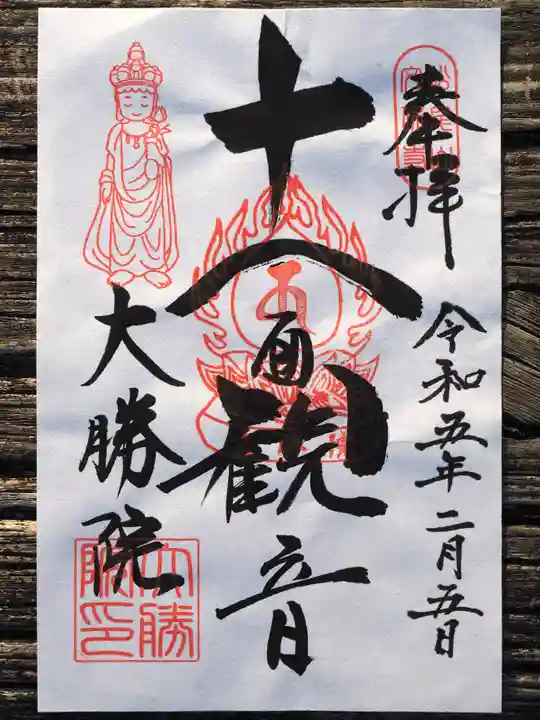 奉拝
令和五年二月五日
十一面観音
大勝院
大勝院印